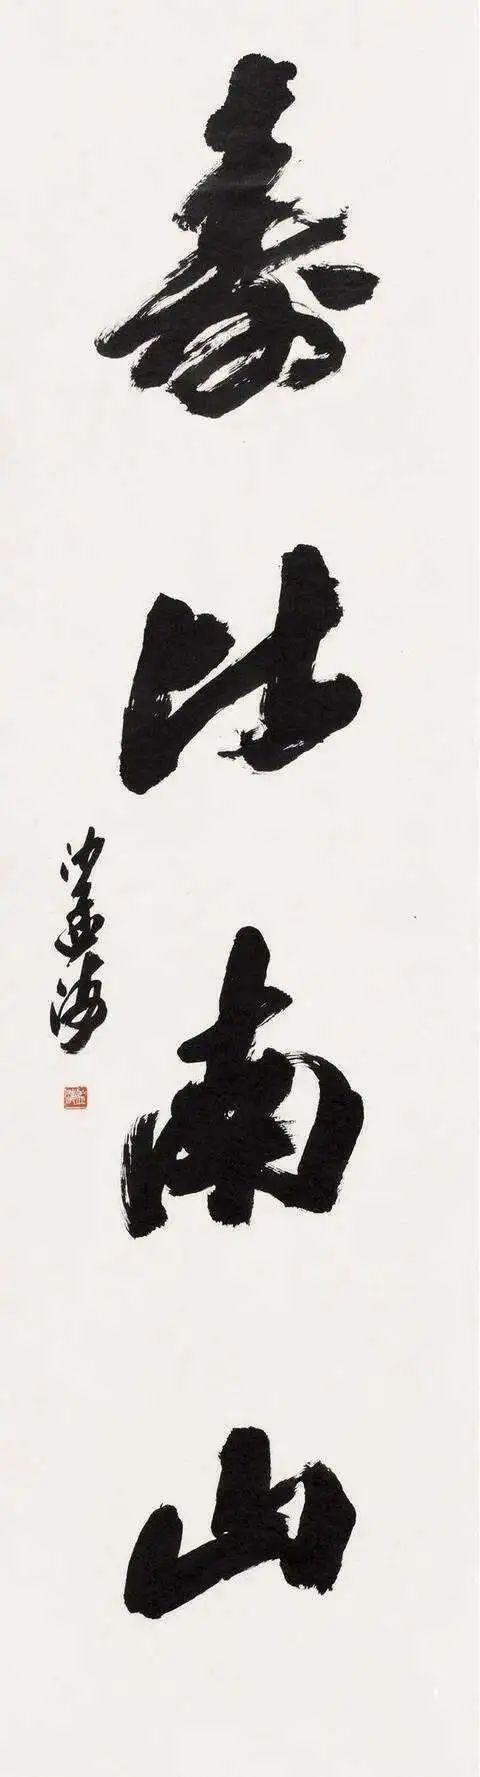 寿比南山
沙孟海